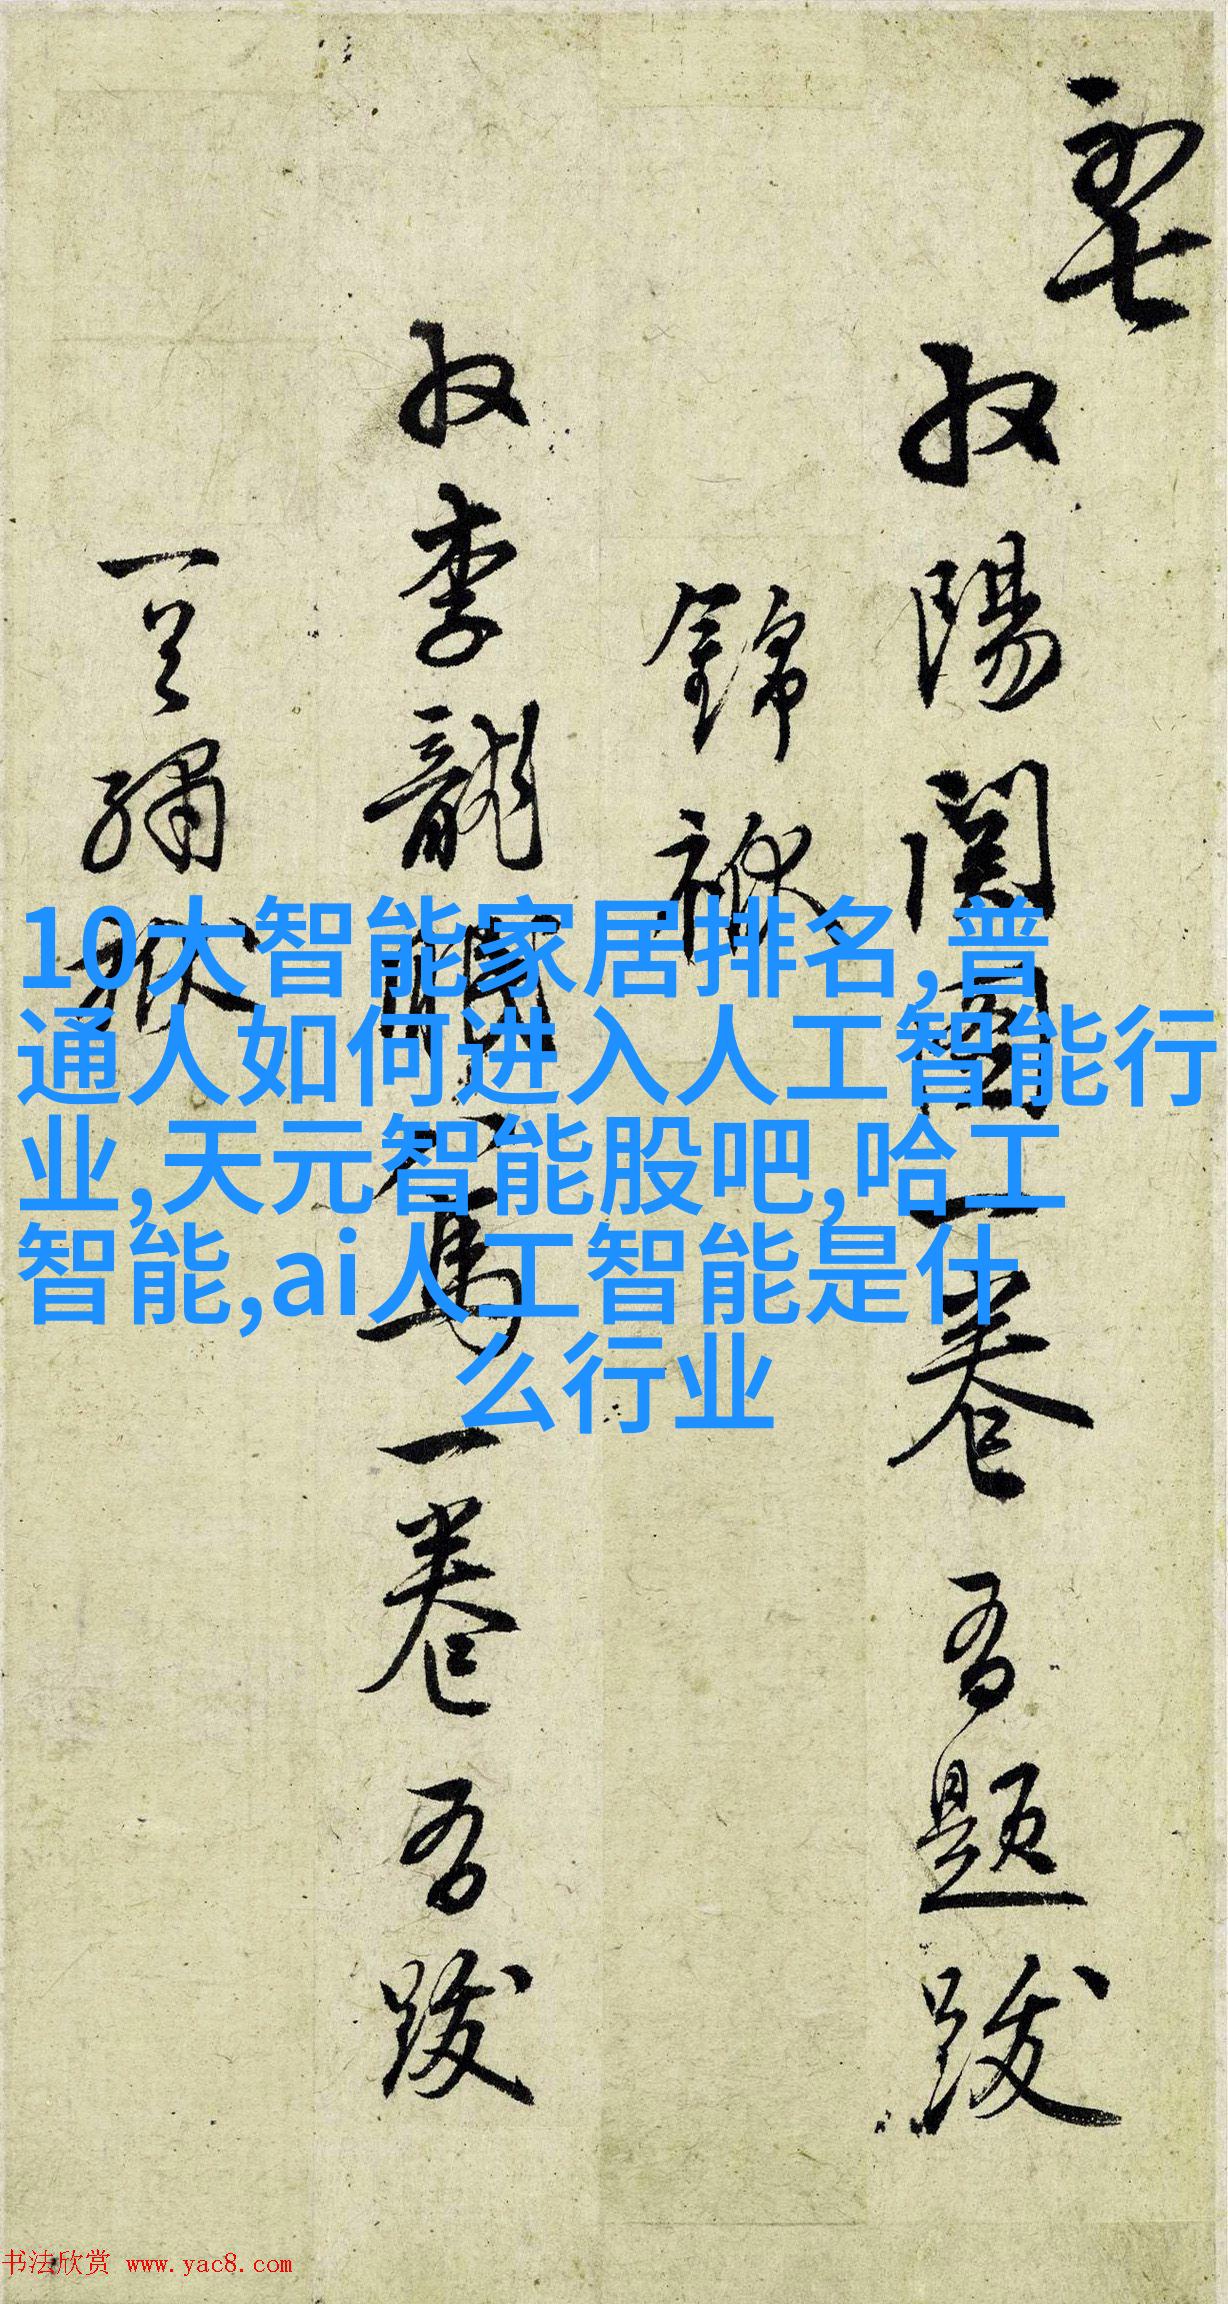 10大智能家居排名,普
通人如何进入人工智能行
业,天元智能股吧,哈工
智能,ai人工智能是什
么行业
収陽関圖一卷吾題跋
錦
収李龍眠馬一卷吾跋
一
书法欣赏 www.yac8.com